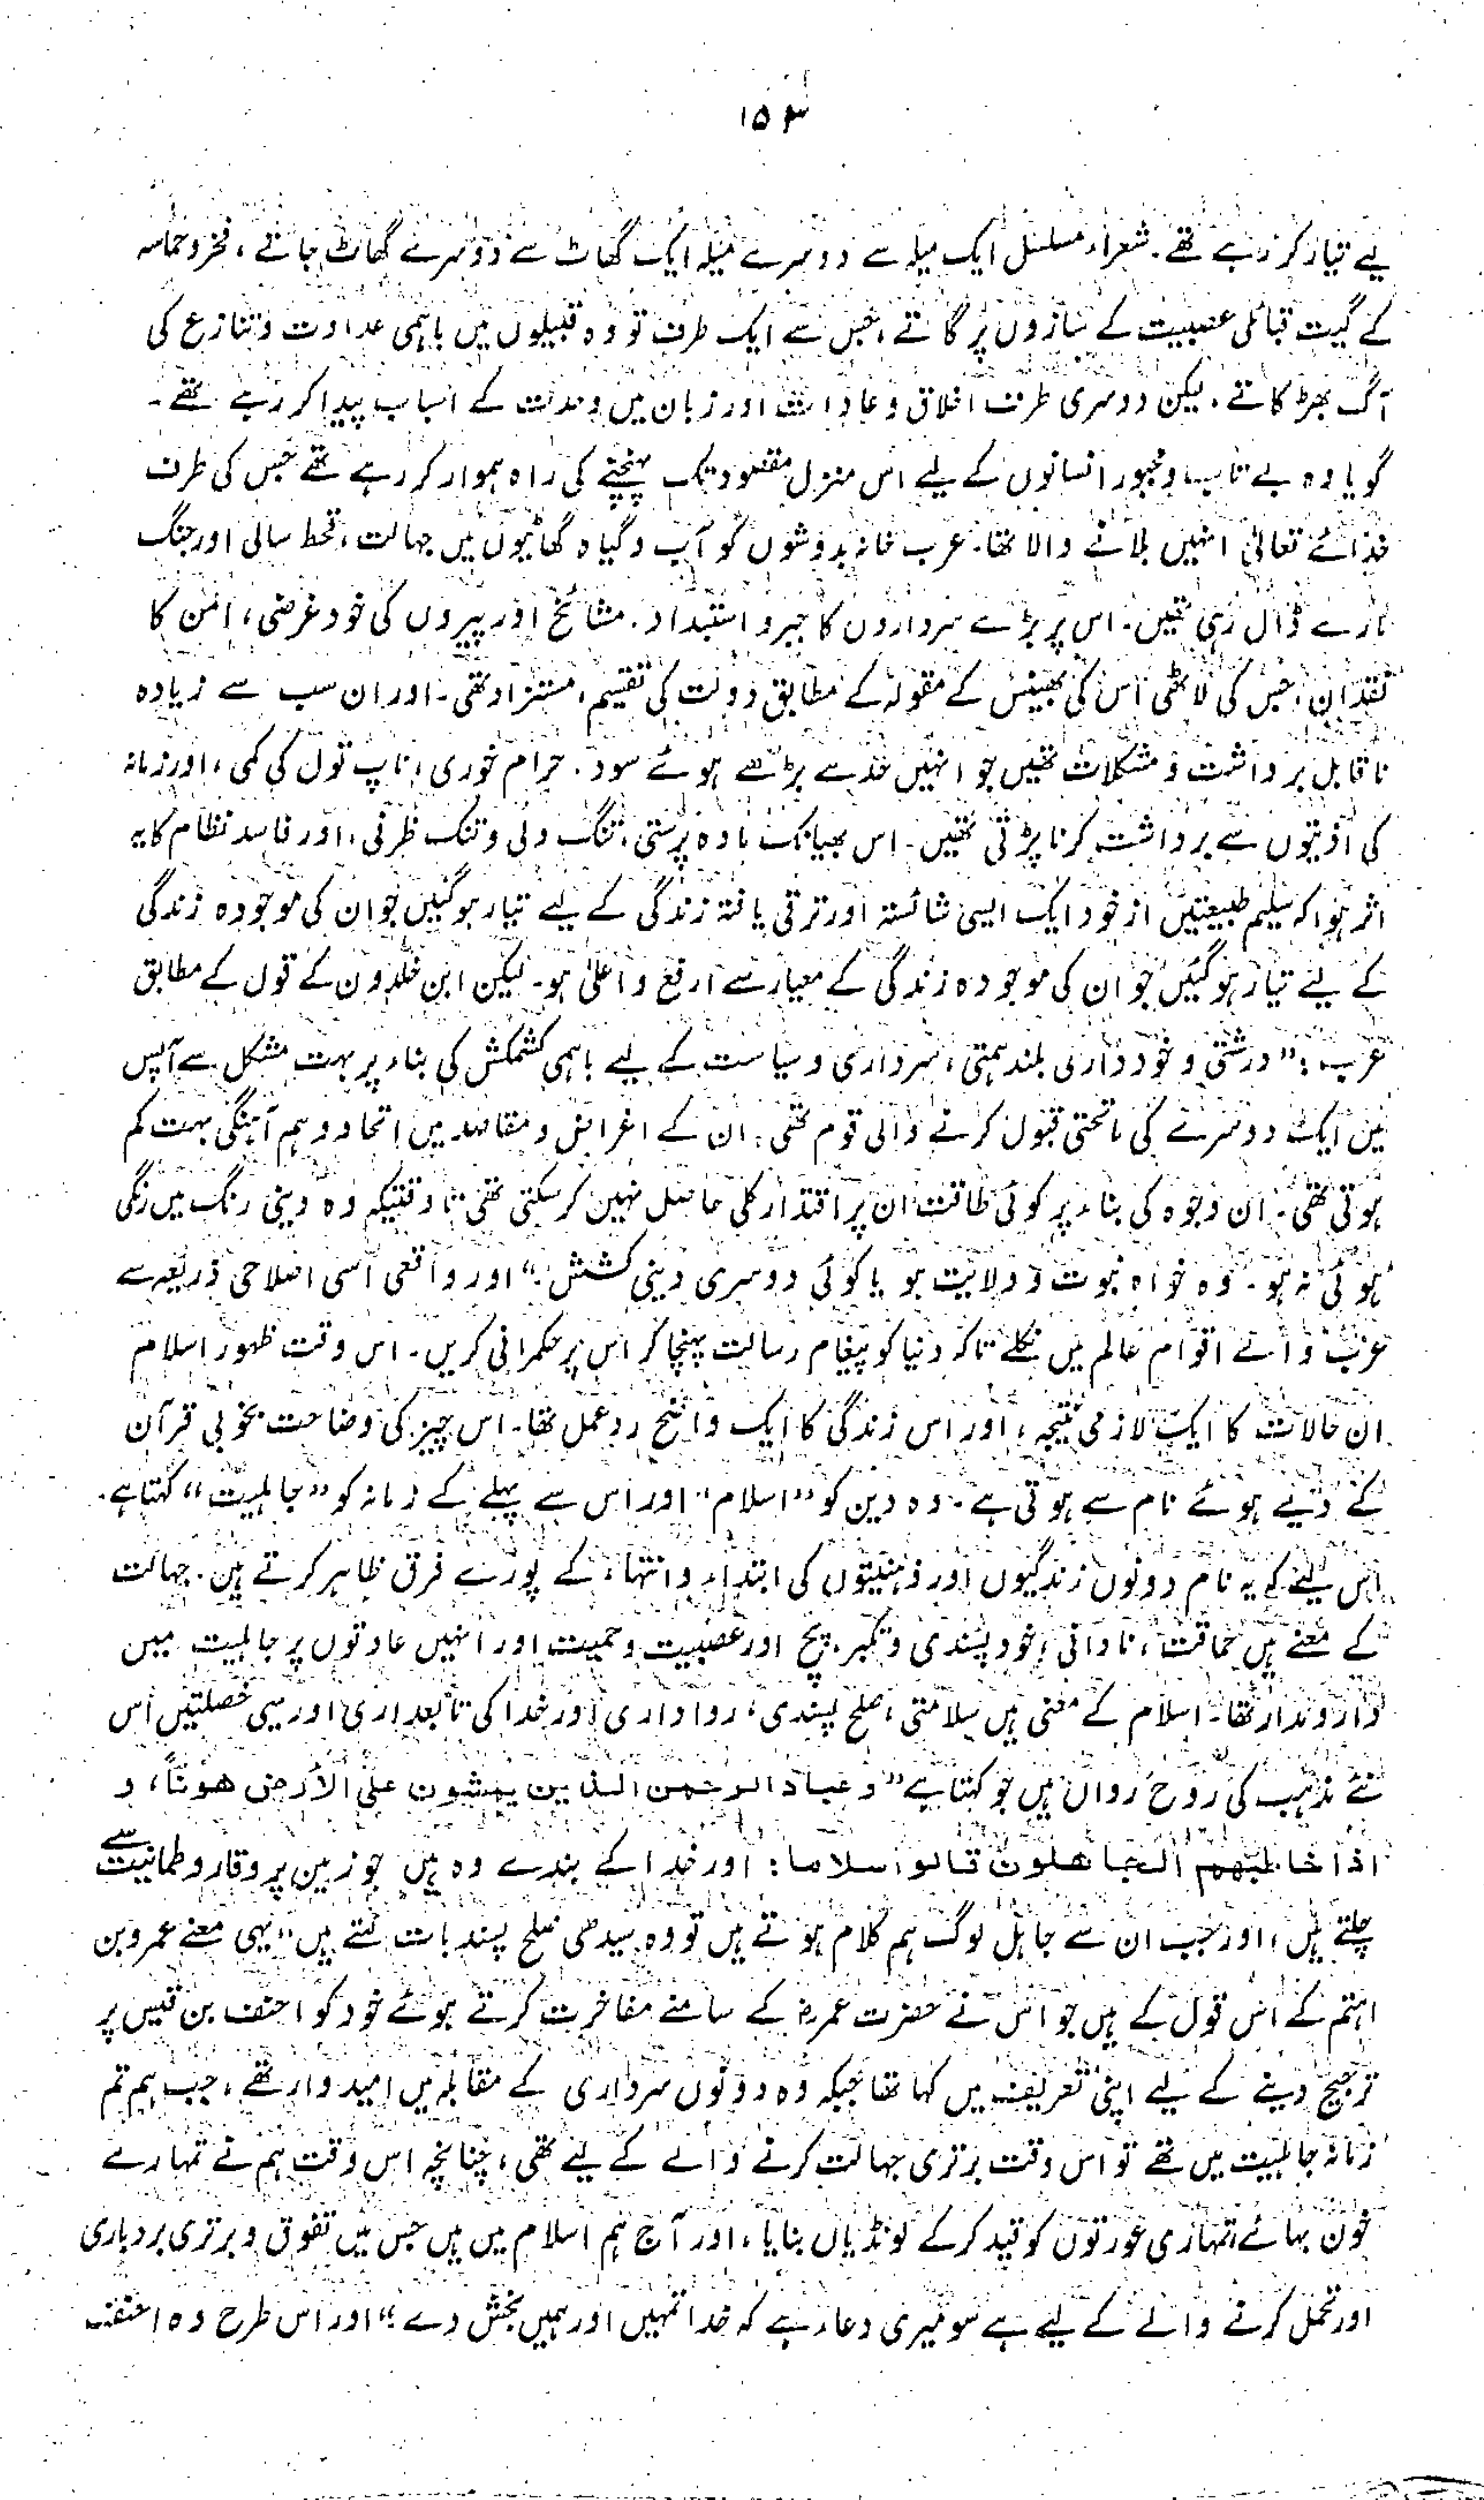 ۱۵۳
لیے تیار کر رہے تھے۔ شعراء مسلسل ایک میلہ سے دوسرے میلہ ایک گھاٹ سے دوسرے گھاٹ جاتے، فخر و حماسہ
کے گیت قبائلی عصبیت کے سازوں پر گاتے، جس سے ایک طرف تو وہ قبیلوں میں باہمی عداوت و تنازع کی
آگ بھڑکاتے۔ لیکن دوسری طرف اخلاق و عادات اور زبان میں وحدت کے اسباب پیدا کر رہے تھے۔
گویا وہ بے تاب و مجبور انسانوں کے لیے اس منزل مقصود تک پہنچنے کی راہ ہموار کر رہے تھے جس کی طرف
خدائے تعالیٰ انہیں بلانے والا تھا۔ عرب خانہ بدوشوں کو آب و گیاہ گھاٹیوں میں جہالت، قحط سالی اور جنگ
مارے ڈال رہی تھیں۔ اس پر بڑے سرداروں کا جبر و استبداد۔ مشائخ اور پیروں کی خود غرضی، امن کا
فقدان، جس کی لاٹھی اس کی بھینس کے مقولہ کے مطابق دولت کی تقسیم، مستزاد تھی۔ اور ان سب سے زیادہ
ناقابل برداشت و مشکلات تھیں جو انہیں حد سے بڑھے ہوئے سود۔ حرام خوری، ناپ تول کی کمی، اور زمانہ
کی اذیتوں سے برداشت کرنا پڑتی تھیں۔ اس بھیانک مادہ پرستی، تنگ دلی و تنک ظرفی، اور فاسد نظام کا یہ
اثر ہوا کہ سلیم طبیعتیں از خود ایک ایسی شائستہ اور ترقی یافتہ زندگی کے لیے تیار ہو گئیں جو ان کی موجودہ زندگی
کے لیے تیار ہو گئیں جو ان کی موجودہ زندگی کے معیار سے ارفع و اعلیٰ ہو۔ لیکن ابن خلدون کے قول کے مطابق
عرب: ”درشتی و خودداری بلند ہمتی، سرداری و سیاست کے لیے باہمی کشمکش کی بناء پر بہت مشکل سے آپس
میں ایک دوسرے کی ماتحتی قبول کرنے والی قوم تھی۔ ان کے اغراض و مقاصد میں اتحاد و ہم آہنگی بہت کم
ہوتی تھی۔ ان وجوہ کی بناء پر کوئی طاقت ان پر اقتدار کلی حاصل نہیں کر سکتی تھی تا وقتیکہ وہ دینی رنگ میں رنگی
ہوئی نہ ہو۔ وہ خواہ نبوت و ولایت ہو یا کوئی دوسری دینی کشش۔“ اور واقعی اسی اصلاحی ذریعہ سے
عرب والے اقوام عالم میں نکلے تاکہ دنیا کو پیغام رسالت پہنچا کر اس پر حکمرانی کریں۔ اس وقت ظہور اسلام
ان حالات کا ایک لازمی نتیجہ، اور اس زندگی کا ایک واضح ردعمل تھا۔ اس چیز کی وضاحت بخوبی قرآن
کے دیے ہوئے نام سے ہوتی ہے۔ وہ دین کو ”اسلام“ اور اس سے پہلے کے زمانہ کو ”جاہلیت“ کہتا ہے۔
اس لیے کہ یہ نام دونوں زندگیوں اور ذہنیتوں کی ابتداء و انتہاء کے پورے فرق ظاہر کرتے ہیں۔ جہالت
کے معنے ہیں حماقت، نادانی، خود پسندی و تکبر۔ پچ اور عصبیت و حمیت اور انہیں عادتوں پر جاہلیت میں
دارومدار تھا۔ اسلام کے معنی ہیں سلامتی، صلح پسندی، رواداری اور خدا کی تابعداری اور یہی خصلتیں اس
نئے مذہب کی روح رواں ہیں جو کہتا ہے ”وعباد الرحمن الذین یمشون علی الأرض ھونًا، و
اذا خاطبھم الجاھلون قالوا سلاما: اور خدا کے بندے وہ ہیں جو زمین پر وقار و طمانیت سے
چلتے ہیں، اور جب ان سے جاہل لوگ ہم کلام ہوتے ہیں تو وہ سیدھی صلح پسند بات کہتے ہیں“ یہی معنے عمرو بن
اہتم کے اس قول کے ہیں جو اس نے حضرت عمرؓ کے سامنے مفاخرت کرتے ہوئے خود کو احنف بن قیس پر
ترجیح دینے کے لیے اپنی تعریف میں کہا تھا جبکہ وہ دونوں سرداری کے مقابلہ میں امیدوار تھے، جب ہم تم
زمانہ جاہلیت میں تھے تو اس وقت برتری جہالت کرنے والے کے لیے تھی، چنانچہ اس وقت ہم نے تمہارے
خون بہائے، تمہاری عورتوں کو قید کر کے لونڈیاں بنایا، اور آج ہم اسلام میں ہیں جس میں تفوق و برتری بردباری
اور تحمل کرنے والے کے لیے ہے سو میری دعاء ہے کہ خدا تمہیں اور ہمیں بخش دے“ اور اس طرح وہ احنف